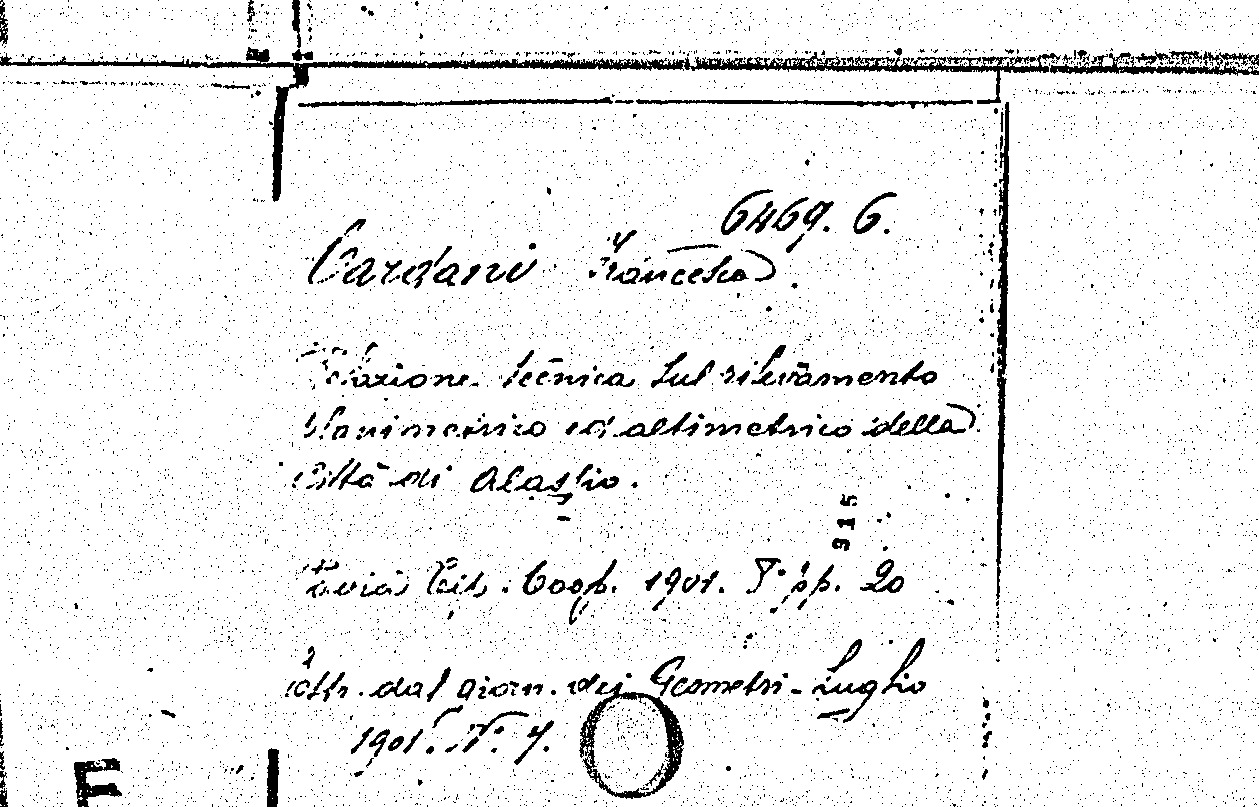 6469. 6.
Cardani Francesco.
Relazione tecnica sul rilevamento
Planimetrico ed altimetrico della
Città di Alassio.
915
Pavia Tit. Coop. 1901. 8° pp. 20
Estr. dal giorn. dei Geometri - Luglio
1901. N. 7.
E